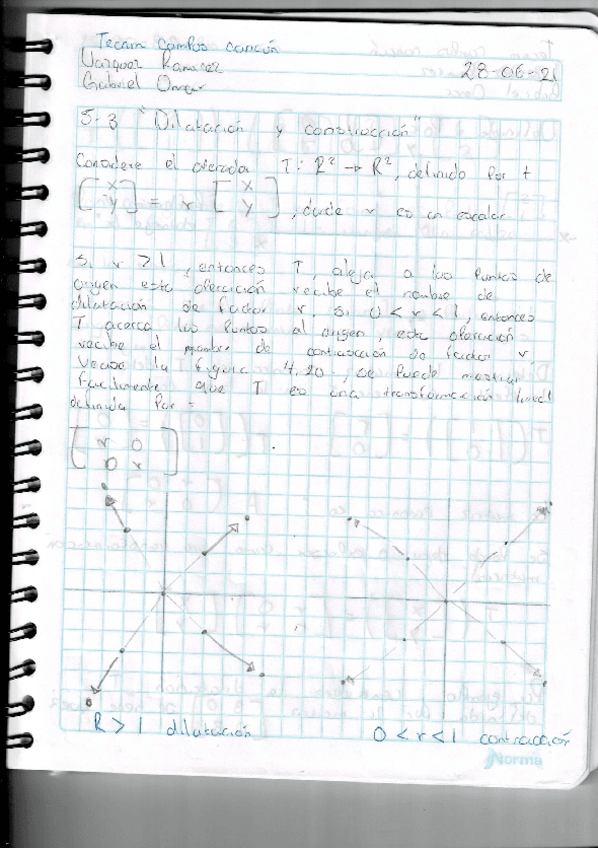 Tecnm campus cancún
Vazquez Ramirez
28-06-21
Gabriel Omar
5.3 "Dilatación y construcción"
Considere el operada T: R² → R², definido por t
[x y] = r [x y], donde r es un escalar
Si r > 1, entonces T, aleja a los puntos de
origen esta operación recibe el nombre de
dilatación de factor r. Si 0 < r < 1, entonces
T acerca los puntos al origen, esta operación
recibe el nombre de contracción de factor r.
Vease la figura 4.20, se puede mostrar
facilmente que T es una transformación lineal
definida Por =
[r 0
0 r]
R > 1 dilatación
0 < r < 1 contracción
Norma